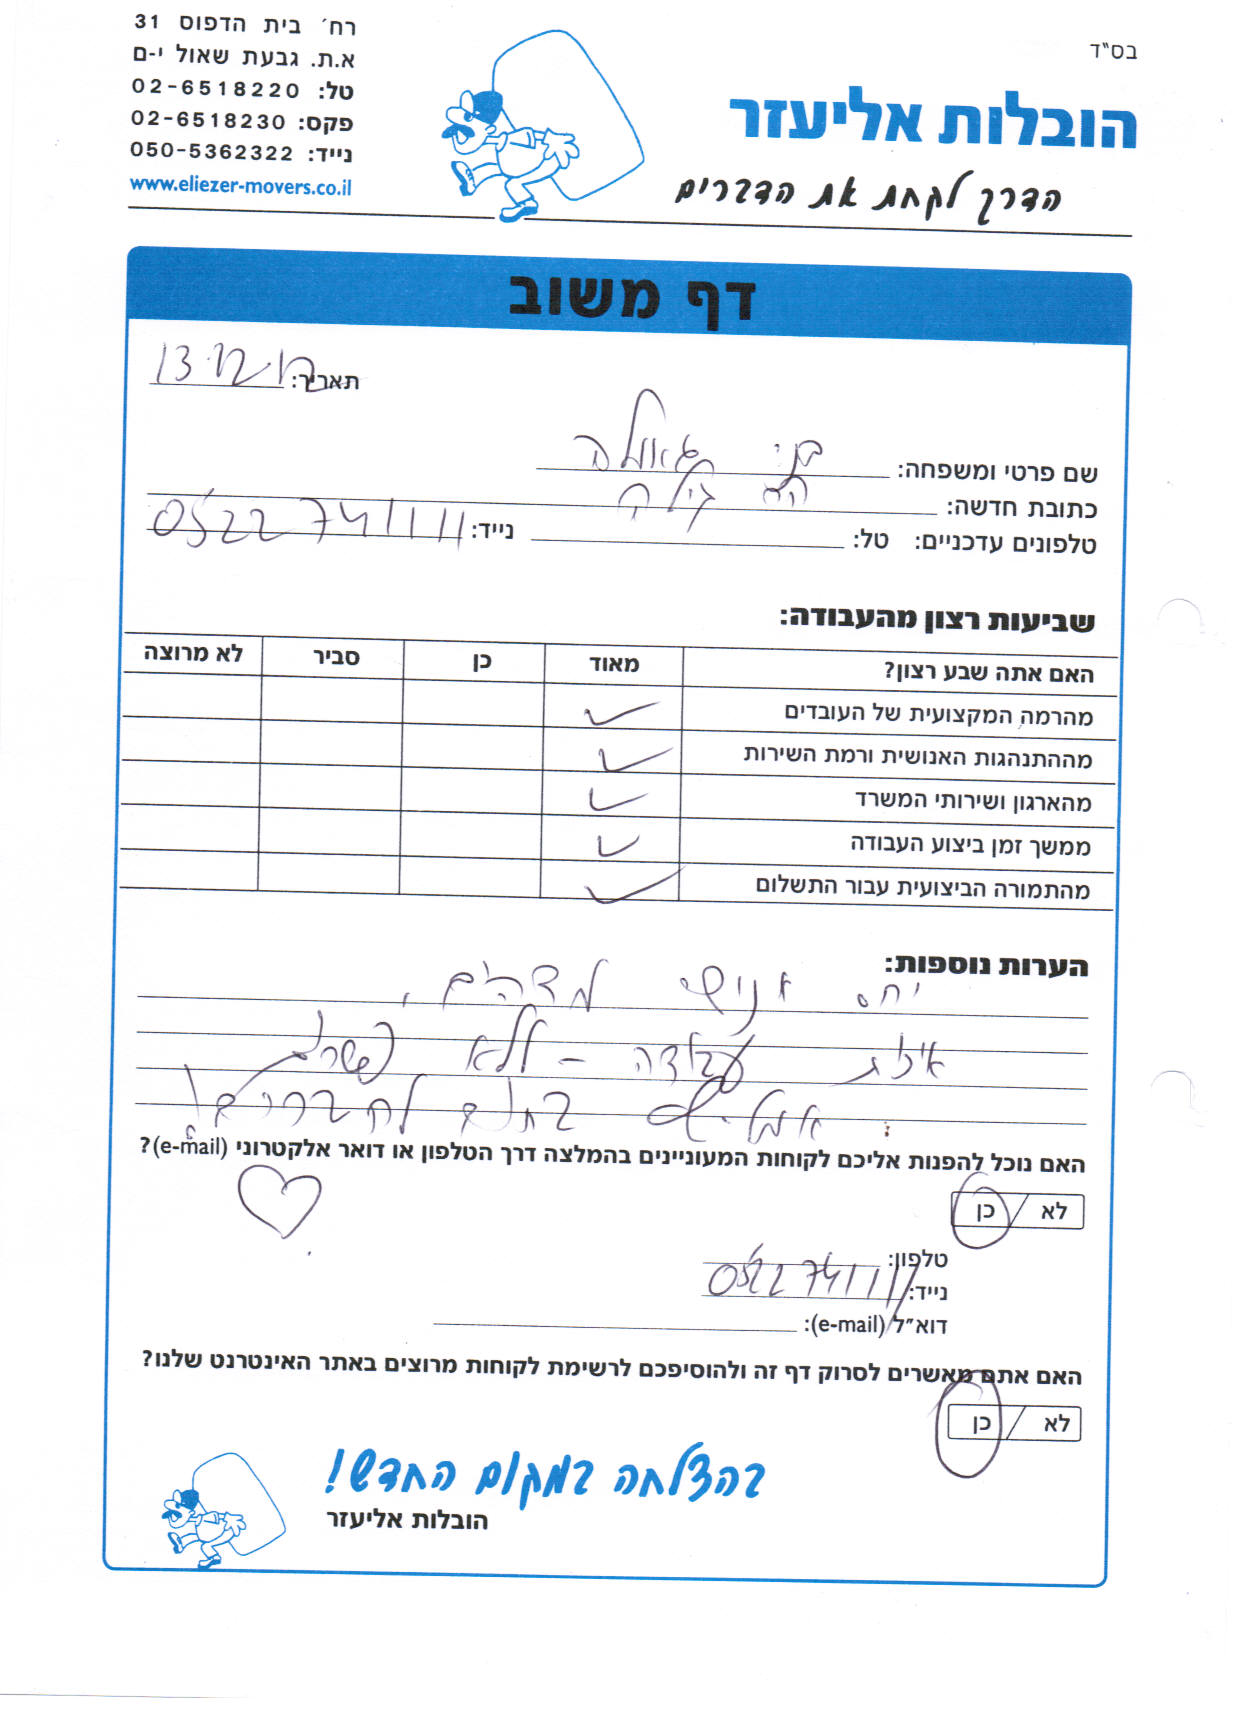 בס"ד
הובלות אליעזר
הדרך לקחת את הדברים
רח׳ בית הדפוס 31
א.ת. גבעת שאול י-ם
טל: 02-6518220
פקס: 02-6518230
נייד: 050-5362322
www.eliezer-movers.co.il
דף משוב
תאריך: 13.12.12
שם פרטי ומשפחה: בני גאולה
כתובת חדשה: הר גילה
טלפונים עדכניים: טל: נייד: 0522741111
שביעות רצון מהעבודה:
האם אתה שבע רצון? מאוד כן סביר לא מרוצה
מהרמה המקצועית של העובדים ✓
מההתנהגות האנושית ורמת השירות ✓
מהארגון ושירותי המשרד ✓
ממשך זמן ביצוע העבודה ✓
מהתמורה הביצועית עבור התשלום ✓
הערות נוספות:
יחס אנושי מדהים,
איכות עבודה - ללא פשרות
אמליץ בחום לחברים!
האם נוכל להפנות אליכם לקוחות המעוניינים בהמלצה דרך הטלפון או דואר אלקטרוני (e-mail)?
לא / כן
טלפון:
נייד: 0522741111
דוא"ל (e-mail):
האם אתם מאשרים לסרוק דף זה ולהוסיפכם לרשימת לקוחות מרוצים באתר האינטרנט שלנו?
לא / כן
בהצלחה במקום החדש!
הובלות אליעזר